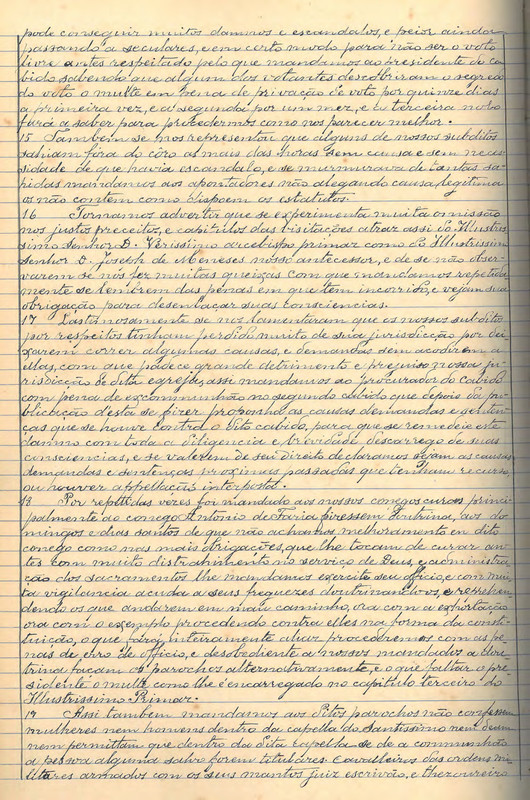 pode conseguir muitos damnos e escandalos, e peior ainda
passando a seculares, e em certo modo para não ser o voto
livre antes respeitado pelo que mandamos ao presidente do ca
bido sabendo que algum dos votantes descobriram o segredo
do voto o multe em pena de privação de voto por quinze dias
a primeira vez, e a segunda por um mez, e a terceira nolo
fará a saber para procedermos como nos parecer melhor.
15 Tambem se nos representou que alguns de nossos subditos
sahiam fóra do côro as mais das horas sem causa e sem neces
sidade de que havia escandalo, e se murmurava de tantas sa
hidas mandamos aos apontadores não alegando causa legitima
os não contem como dispoem os estatutos.
16 Tornamos advertir que se experimenta muita omissão
nos justos preceitos, e capitulos das visitações atraz assi do Illustris
simo Senhor D. Verissimo arcebispo primaz como do Illustrissim
Senhor D. Joseph de Meneses nosso antecessor, e de se não obser
varem se nós fez muitas queixas com que mandamos repetida
mente se lembrem das penas em que tem incorrido, e vejam sua
obrigação para desenlaçar suas consciencias.
17 Lastimosamente se nos lamentaram que os nossos subditos
por respeitos tinham perdido muito de sua jurisdicção por dei
xarem correr algumas causas, e demandas sem acodirem a
ellas, com que padece grande detrimento e prejuiso nossa ju
risdicção e dita egreja, assi mandamos ao Procurador do Cabido
com pena de excommunhão no segundo cabido que depois da pu
blicação d'esta se fizer proponha as causas demandas e senten
ças que se houve contra o dito cabido, para que se remedeie este
damno com toda a diligencia e brevidade descarrego de suas
consciencias, e se valerem de seu direito declaramos sejam as causas
demandas e sentenças proximas passadas que tenham recurso
ou houver appellação interposta.
18 Por repetidas vézes foi mandado aos nossos conegos curas princi
palmente ao conego Antonio de Faria fizessem doutrina, aos do
mingos e dias santos de que não achamos melhoramento en dito
conego como nas mais obrigações, que lhe tocam de curar an
tes com muito distrahimento no serviço de Deus e administra
ção dos sacramentos lhe mandamos exercite seu officio, e com mui
ta vigilancia acuda a seus freguezes doutrinando-os, e reprehen
dendo os que andarem em mau caminho, ora com a exhortação
ora com o exemplo procedendo contra elles na forma da consti
tuição, o que fará inteiramente aliaz procederemos com as pe
nas de erro de officio, e desobediente a nossos mandados a dou
trina façam os parochos alternativamente, e o que faltar o pre
sidente o multe, como lhe é encarregado no capitulo terceiro do
Illustrissimo Primaz.
19 Assi tambem mandamos aos ditos parochos não confessem
mulheres nem homens dentro da capella do Santissimo nem
nem permittam que dentro da dita capella se de a communhão
a pessoa alguma salvo forem titulares. Cavalleiros das ordens mi
litares armados com os seus mantos juiz escrivão, e thezoureiro